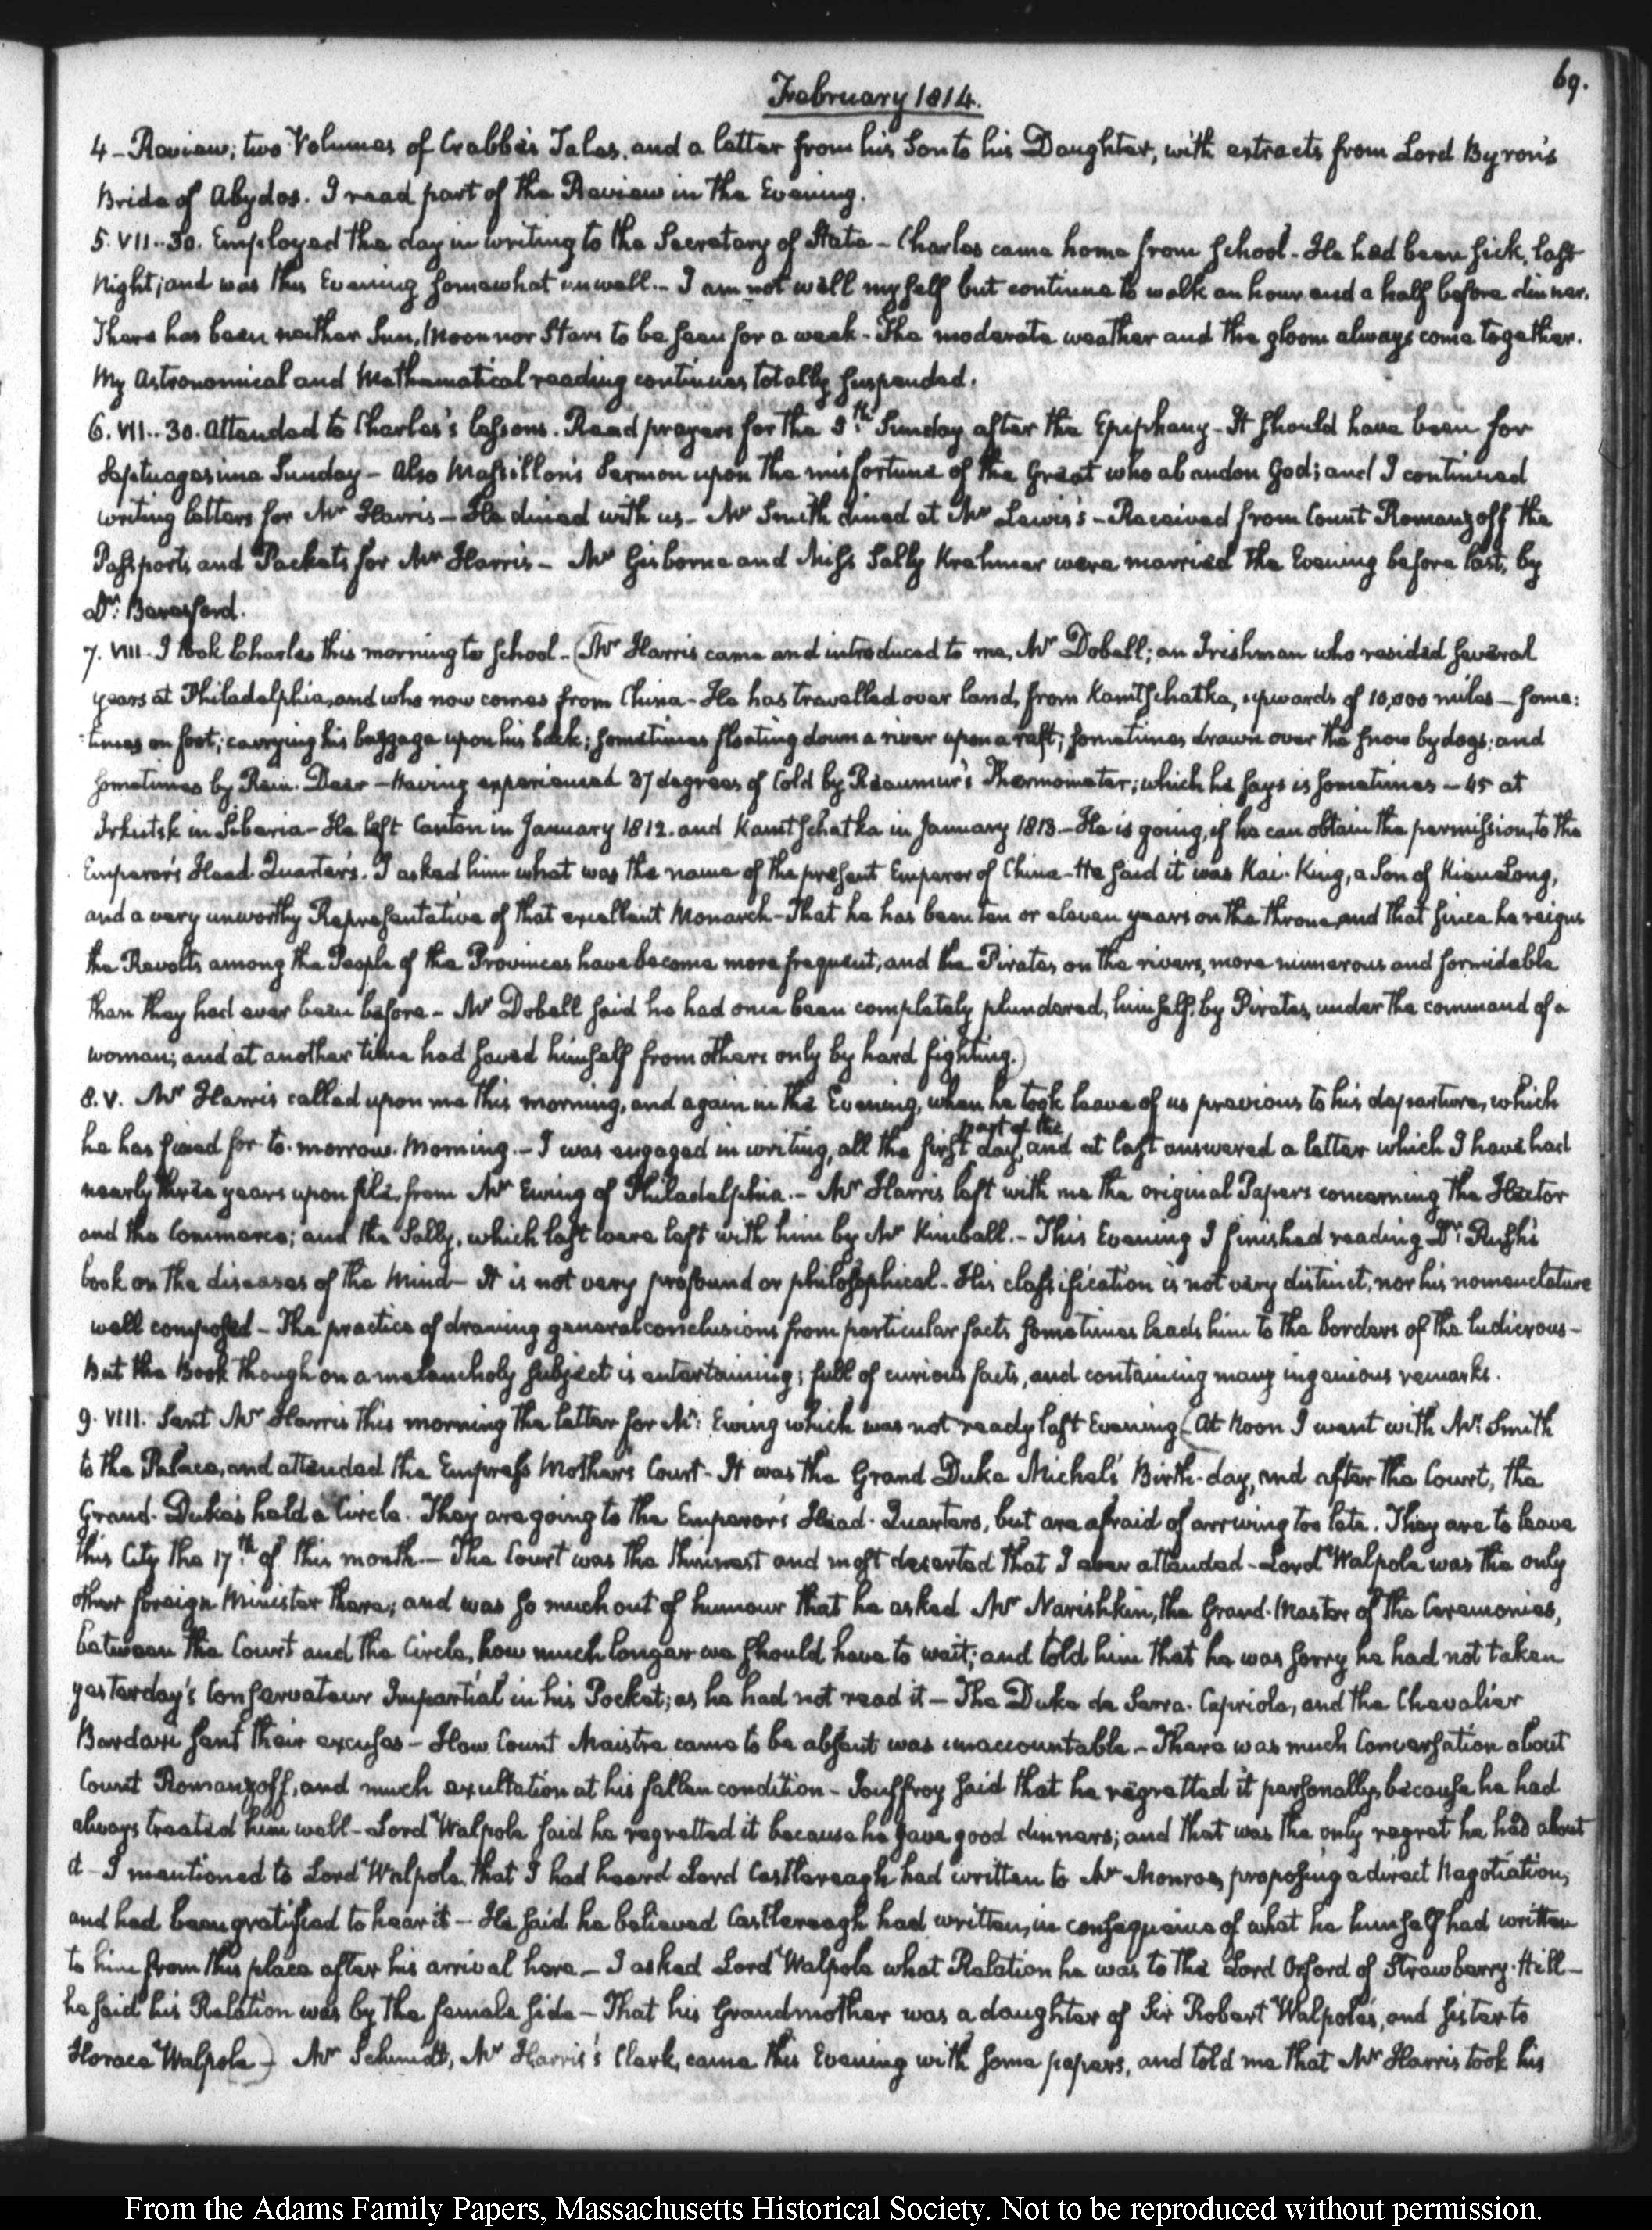 69.
February 1814.
4 - Review; two Volumes of Crabbe's Tales, and a letter from his Son to his Daughter, with extracts from Lord Byron's
Bride of Abydos. I read part of the Review in the Evening.
5. VII..30. Employed the day in writing to the Secretary of State - Charles came home from School - He had been sick, last
Night; and was this Evening somewhat unwell.- I am not well myself but continue to walk an hour and a half before dinner.
There has been neither Sun, Moon nor Stars to be seen for a week - The moderate weather and the gloom always come together.
My Astronomical and Mathematical reading continues totally suspended.
6. VII..30. Attended to Charles's lessons. Read prayers for the 5th. Sunday after the Epiphany - It should have been for
Septuagesima Sunday - Also Massillon's Sermon upon the misfortune of the Great who abandon God; and I continued
writing letters for Mr Harris - He dined with us - Mr Smith dined at Mr Lewis's - Received from Count Romanzoff the
Passports and Packets for Mr Harris - Mr Gisborne and Miss Sally Krehmer were married the Evening before last, by
Dr: Beresford.
7. VIII. I took Charles this morning to School - (Mr Harris came and introduced to me, Mr Dobell; an Irishman who resided several
years at Philadelphia, and who now comes from China - He has travelled over land, from Kamtschatka, upwards of 10,000 miles - some:
:times on foot; carrying his baggage upon his back; sometimes floating down a river upon a raft; sometimes drawn over the snow by dogs; and
sometimes by Rein-Deer - Having experienced 37 degrees of Cold by Reaumur's Thermometer; which he says is sometimes - 45 at
Irkutsk in Siberia - He left Canton in January 1812. and Kamtschatka in January 1813 - He is going, if he can obtain the permission, to the
Emperor's Head-Quarters. I asked him what was the name of the present Emperor of China - He said it was Kai-King, a Son of Kien Long,
and a very unworthy Representative of that excellent Monarch - That he has been ten or eleven years on the throne, and that since he reigns
the Revolts among the People of the Provinces have become more frequent, and the Pirates on the rivers, more numerous and formidable
than they had ever been before - Mr Dobell said he had once been completely plundered, himself, by Pirates, under the command of a
woman; and at another time had saved himself from others only by hard fighting.)
8. V. Mr Harris called upon me this morning, and again in the Evening, when he took leave of us previous to his departure, which
he has fixed for to-morrow Morning.- I was engaged in writing, all the first part of the day, and at last answered a letter which I have had
nearly three years upon file, from Mr Ewing of Philadelphia.- Mr Harris left with me the original Papers concerning the Hector
and the Commerce; and the Sally, which last were left with him by Mr Kimball.- This Evening I finished reading Dr: Rush's
book on the diseases of the Mind - It is not very profound or philosophical - His classification is not very distinct, nor his nomenclature
well composed - The practice of drawing general conclusions from particular facts sometimes leads him to the borders of the ludicrous -
But the Book though on a melancholy subject is entertaining; full of curious facts, and containing many ingenious remarks.
9. VIII. Sent Mr Harris this morning the letter for Mr: Ewing which was not ready last Evening (At Noon I went with Mr: Smith
to the Palace, and attended the Empress Mother's Court - It was the Grand Duke Michel's Birth-day, and after the Court, the
Grand-Dukes held a Circle. They are going to the Emperor's Head-Quarters, but are afraid of arriving too late. They are to leave
this City the 17th of this month - The Court was the thinnest and most deserted that I ever attended - Lord Walpole was the only
other foreign Minister there; and was so much out of humour that he asked Mr Narishkin, the Grand-Master of the Ceremonies,
between the Court and the Circle, how much longer we should have to wait; and told him that he was sorry he had not taken
yesterday's Conservateur Impartial in his Pocket; as he had not read it - The Duke de Serra-Capriola, and the Chevalier
Bardaxi sent their excuses - How Count Maistre came to be absent was unaccountable - There was much Conversation about
Count Romanzoff, and much exultation at his fallen condition - Jouffroy said that he regretted it personally, because he had
always treated him well - Lord Walpole said he regretted it because he gave good dinners; and that was the only regret he had about
it - I mentioned to Lord Walpole, that I had heard Lord Castlereagh had written to Mr Monroe, proposing a direct Negotiation;
and had been gratified to hear it - He said he believed Castlereagh had written, in consequence of what he himself had written
to him from this place after his arrival here - I asked Lord Walpole what Relation he was to the Lord Orford of Strawberry-Hill -
he said his Relation was by the female side - That his Grandmother was a daughter of Sir Robert Walpole's, and Sister to
Horace Walpole -) Mr Schmidt, Mr Harris's Clerk, came this Evening with some papers, and told me that Mr Harris took his
From the Adams Family Papers, Massachusetts Historical Society. Not to be reproduced without permission.